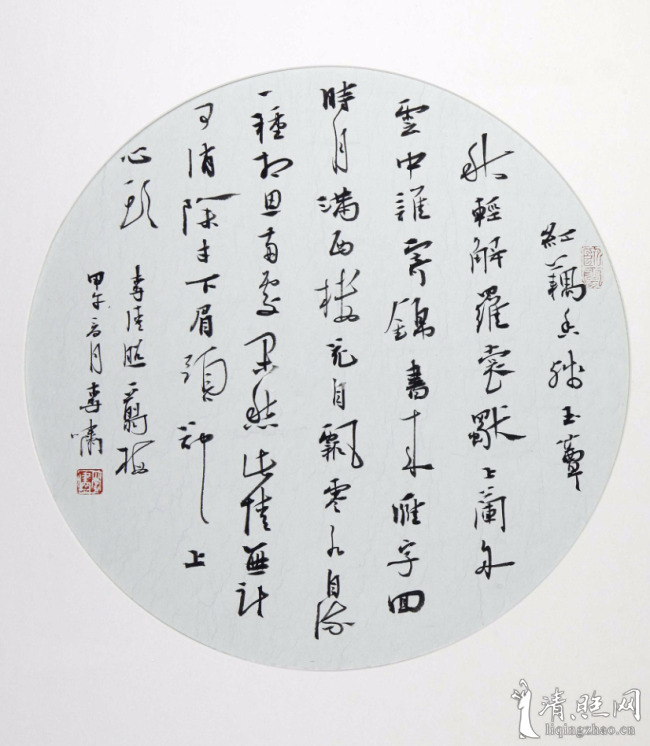 紅藕香殘玉簟
秋輕解羅裳獨上蘭舟
雲中誰寄錦書來雁字回
時月滿西樓花自飄零水自流
一種相思兩處閑愁此情無計
可消除才下眉頭卻上
心頭
李清照一剪梅
甲午月李嘯
清照网
liqingzhao.cn